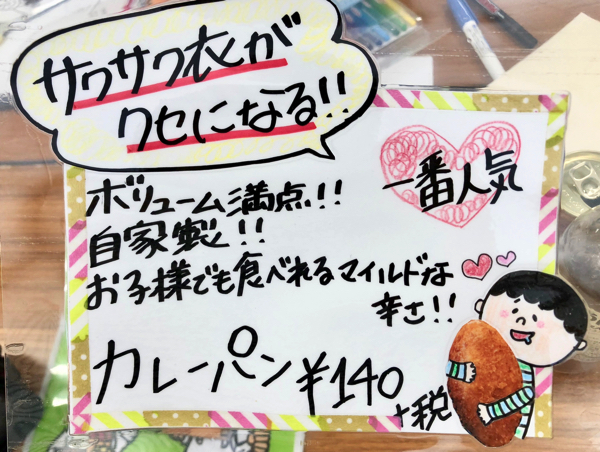 サクサク衣が
クセになる!!
一番人気
ボリューム満点!!
自家製!!
お子様でも食べれるマイルドな
辛さ!!
カレーパン ¥140
+税